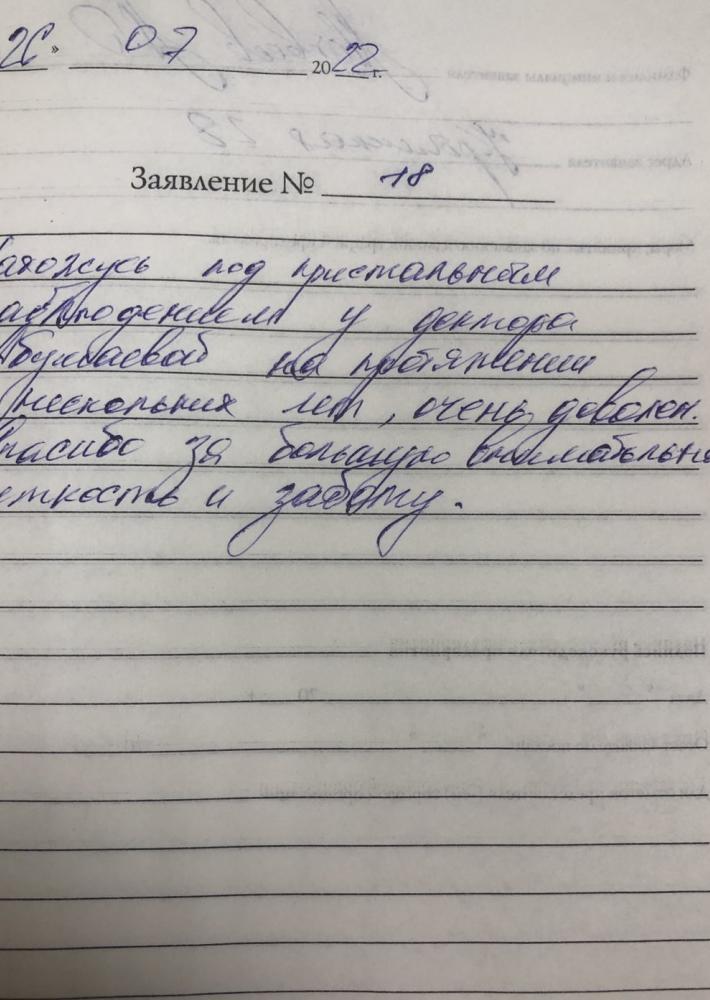 26» 07 2022 г.
Заявление № 18
ахожусь под пристальным
аблюдением у доктора
на протяжении
нескольких лет, очень доволен.
пасибо за большую внимательно
еткость и заботу.